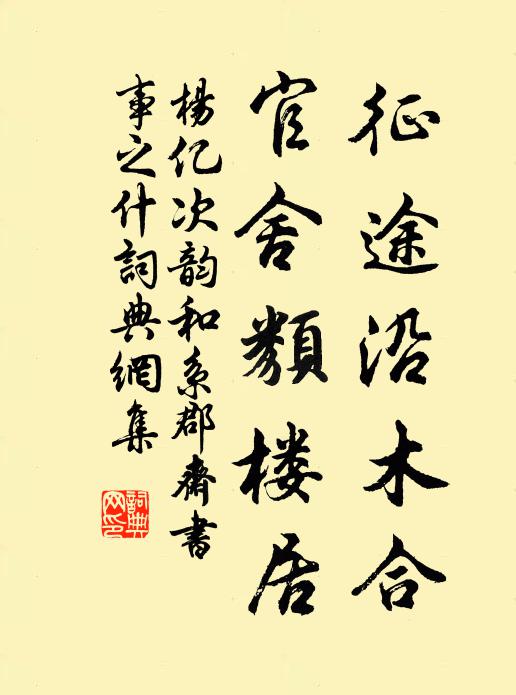 征途沿木合
官舍類楼居
杨亿次韵和系郡齋書
事之什詞典網集
詞典
网印